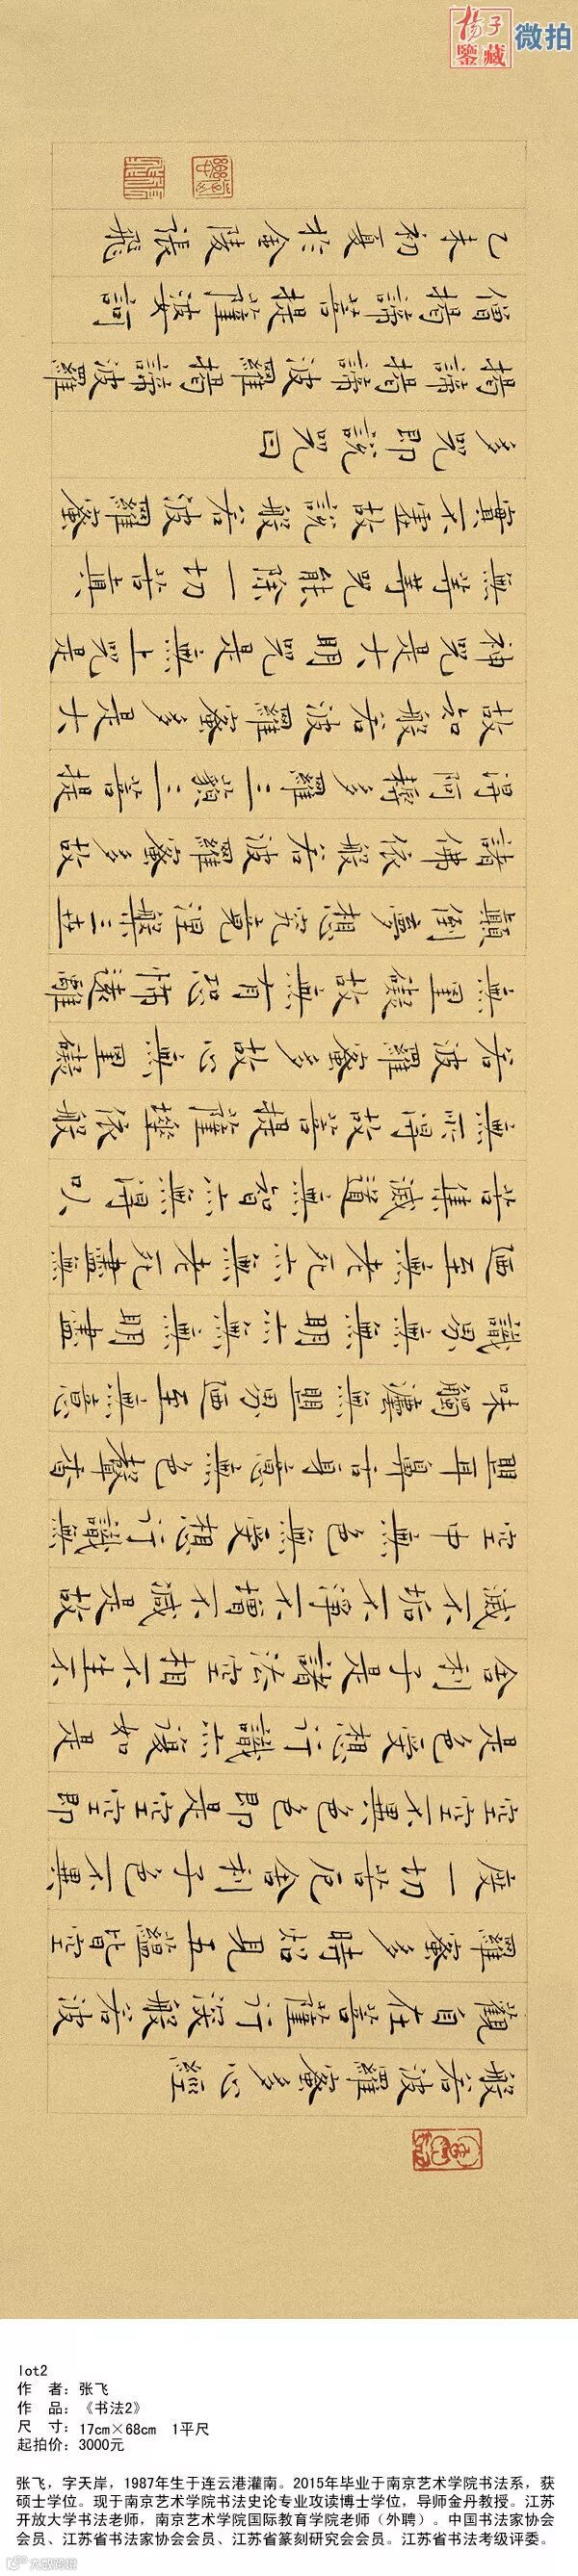 扬子
鉴藏
微拍
般若波羅蜜多心經
觀自在菩薩行深般若波
羅蜜多時照見五蘊皆空
度一切苦厄舍利子色不異
空空不異色色即是空空即
是色受想行識亦復如是
舍利子是諸法空相不生不
滅不垢不淨不增不減是故
空中無色無受想行識無
眼耳鼻舌身意無色聲香
味觸灋無眼界迺至無意
識界無無明亦無無明盡
迺至無老死亦無老死盡無
苦集滅道無智亦無得以
無所得故菩提薩埵依般
若波羅蜜多故心無罣礙
無罣礙故無有恐怖遠離
顛倒夢想究竟涅槃三世
諸佛依般若波羅蜜多故
得阿耨多羅三藐三菩提
故知般若波羅蜜多是大
神咒是大明咒是無上咒是
無等等咒能除一切苦真
實不虛故說般若波羅蜜
多咒即說咒曰
揭諦揭諦波羅揭諦波羅
僧揭諦菩提薩婆訶
乙未初夏於金陵張飛
lot2
作 者：张飞
作 品：《书法2》
尺 寸：17cm×68cm 1平尺
起拍价：3000元
张飞，字天岸，1987年生于连云港灌南。2015年毕业于南京艺术学院书法系，获
硕士学位。现于南京艺术学院书法史论专业攻读博士学位，导师金丹教授。江苏
开放大学书法老师，南京艺术学院国际教育学院老师（外聘）。中国书法家协会
会员、江苏省书法家协会会员、江苏省篆刻研究会会员。江苏省书法考级评委。